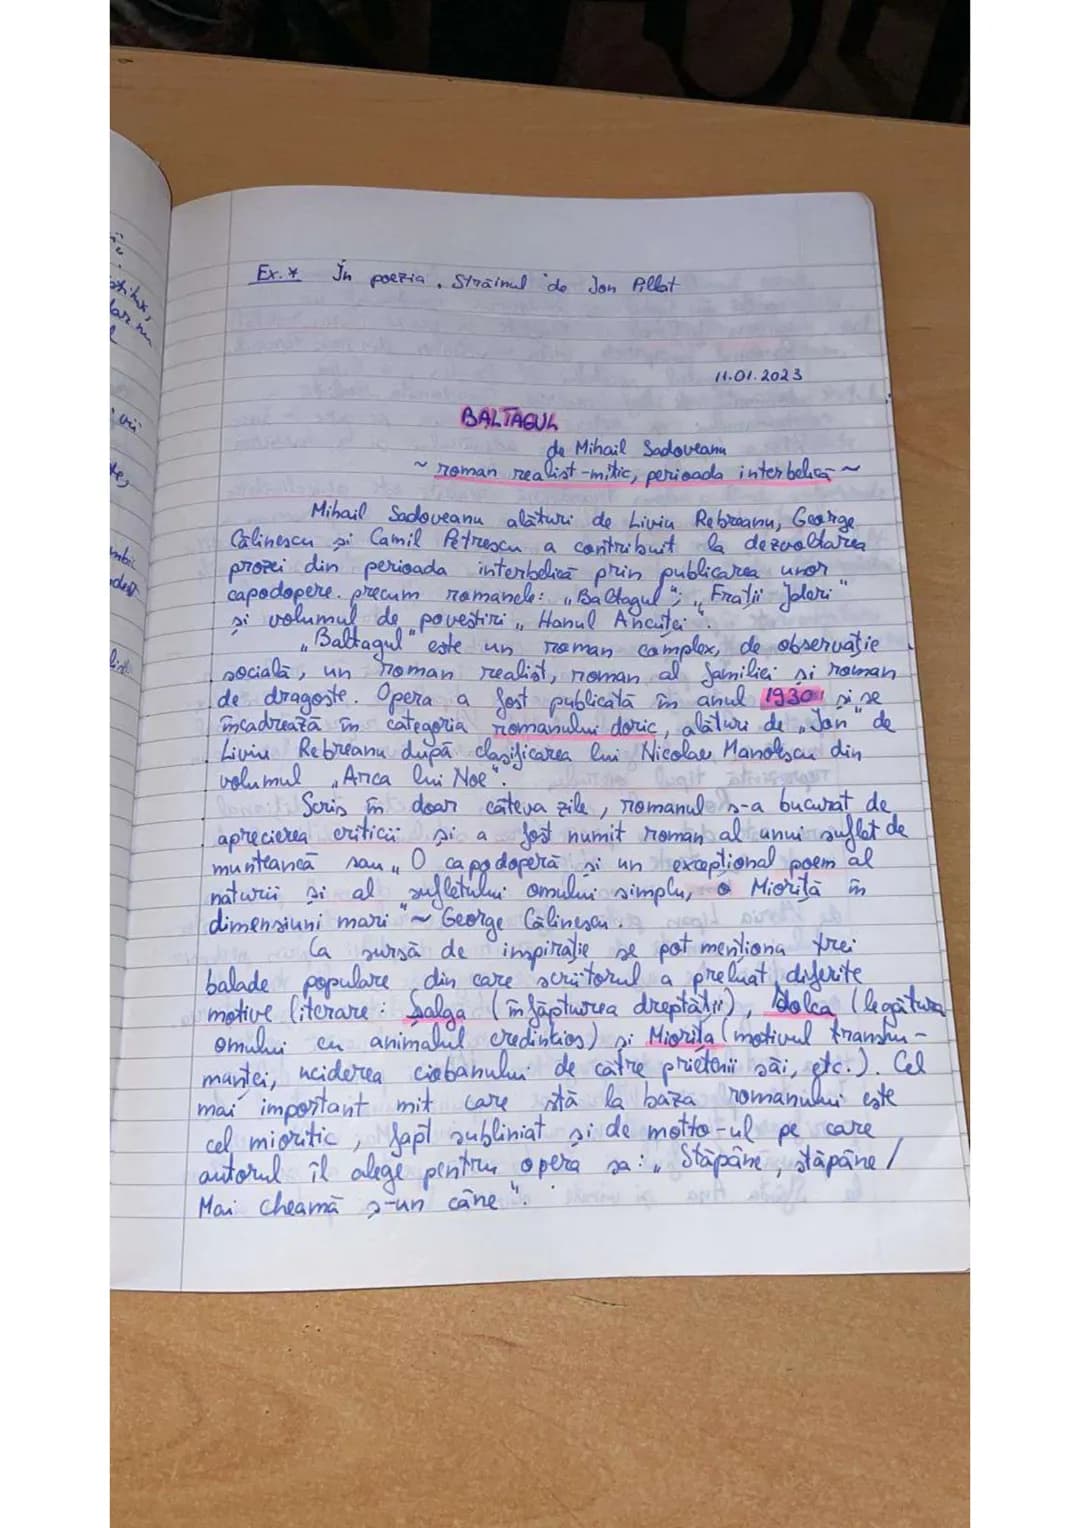 Ex. * În poezia „Străinul" de Ion Pillat
11.01.2023
BALTAGUL
de Mihail Sadoveanu
~ roman realist-mitic, perioada interbelică ~
Mihail Sadoveanu alături de Liviu Rebreanu, George
Călinescu și Camil Petrescu a contribuit la dezvoltarea
prozei din perioada interbelică prin publicarea unor
capodopere. precum romanele: „Baltagul"; „Frații Jderi"
și volumul de povestiri „Hanul Ancuței".
„Baltagul" este un roman complex, de observație
socială, un roman realist, roman al familiei și roman
de dragoste. Opera a fost publicată în anul 1930, și se
încadrează în categoria romanului doric, alături de „Ion" de
Liviu Rebreanu după clasificarea lui Nicolae Manolescu din
volumul „Arca lui Noe".
Scris în doar câteva zile, romanul s-a bucurat de
aprecierea criticii și a fost numit roman al unui suflet de
munteancă sau „O capodoperă și un excepțional poem al
naturii și al sufletului omului simplu, o Mioriță în
dimensiuni mari" ~ George Călinescu.
Ca sursă de inspirație se pot menționa trei
balade populare din care scriitorul a preluat diferite
motive literare: Șalga (înfăptuirea dreptății), Dolca (legătura
omului cu animalul credincios) și Miorița (motivul transhu-
manței, uciderea ciobanului de către prietenii săi, etc.). Cel
mai important mit care stă la baza romanului este
cel mioritic, fapt subliniat și de motto-ul pe care
autorul îl alege pentru opera sa: „Stăpâne, stăpâne /
Mai cheamă ș-un câne".